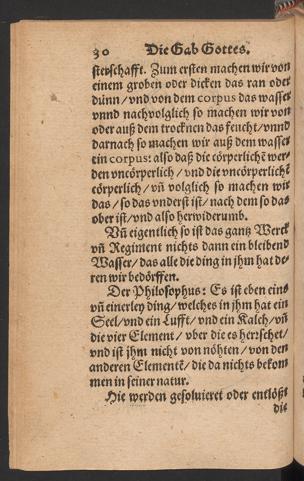 30 Die Gab Gottes.
sterschafft. Zum ersten machen wir von
einem groben oder dicken das ran oder
dünn / vnd von dem corpus das wasser
vnnd nachvolglich so machen wir von
oder auß dem trocknen das feucht / vnnd
darnach so machen wir auß dem wasser
ein corpus: also daß die cörperlichē wer-
den vncörperlich / vnd die vncörperlichē
cörperlich / vñ volglich so machen wir
das / so das vnderst ist / nach dem so das
ober ist / vnd also herwiderumb.
Vñ eigentlich so ist das gantz Werck
vñ Regiment nichts dann ein bleibend
Wasser / das alle die ding in jhm hat de-
ren wir bedörffen.
Der Philosophus: Es ist eben eins
vñ einerley ding / welches in jhm hat ein
Seel / vnd ein Lufft / vnd ein Kalch / vñ
die vier Element / vber die es herrschet /
vnd ist jhm nicht von nöhten / von den
anderen Elementē / die da nichts bekom
men in seiner natur.
Hie werden gesoluieret oder entlößt
die